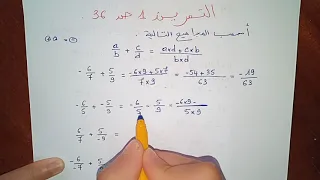 التمرين 1 صد 36 .
أحسب المجاميع التالية .
a/b + c/d = a×d + c×b / b×d
-6/7 + 5/9 = -6×9 + 5×7 / 7×9 = -54 + 35 / 63 = -19/63
-6/5 + -5/9 = -6/5 - 5/9 = -6×9 - / 5×9
6/7 + 5/-9 =
-6/-7 + 5/